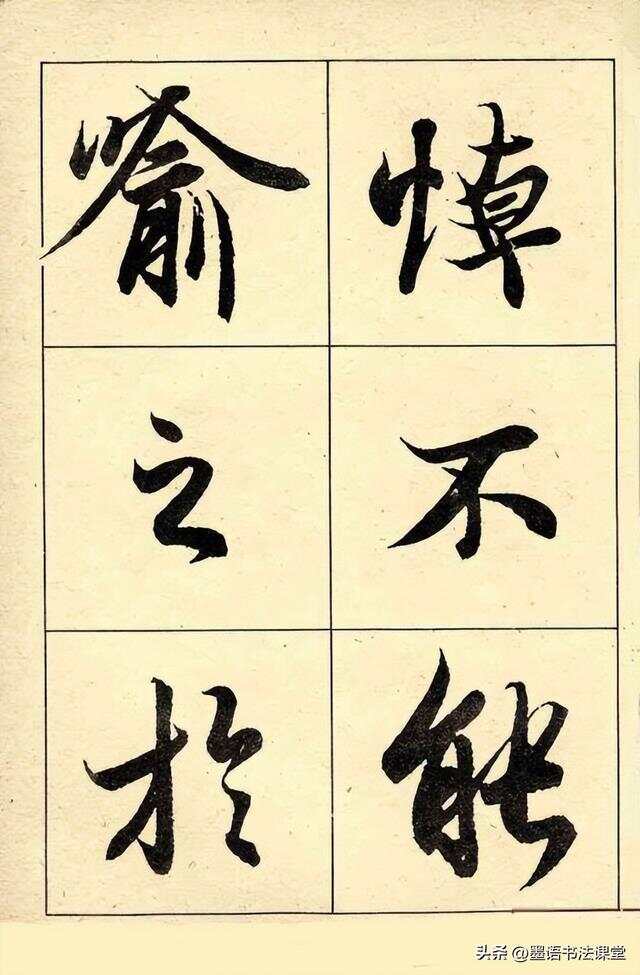 悼不能
喻之於
头条 @墨语书法课堂